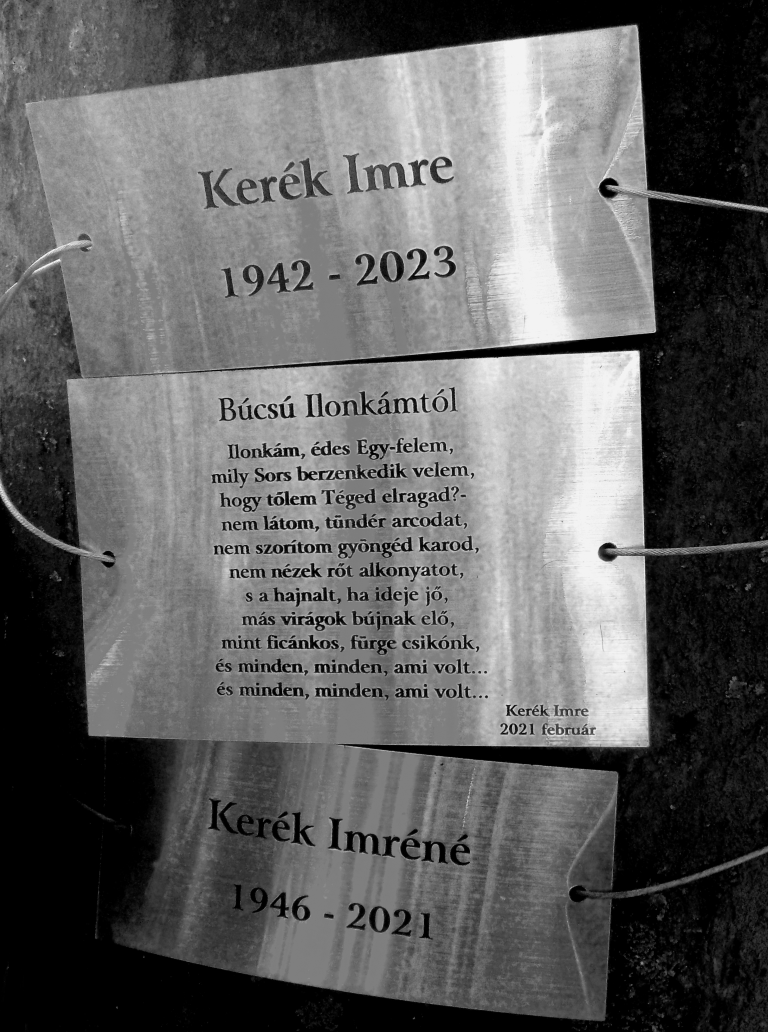 Kerék Imre
1942 - 2023
Búcsú Ilonkámtól
Ilonkám, édes Egy-felem,
mily Sors berzenkedik velem,
hogy tőlem Téged elragad?-
nem látom, tündér arcodat,
nem szorítom gyöngéd karod,
nem nézek rőt alkonyatot,
s a hajnalt, ha ideje jő,
más virágok bújnak elő,
mint ficánkos, fürge csikónk,
és minden, minden, ami volt...
és minden, minden, ami volt...
Kerék Imre
2021 február
Kerék Imréné
1946 - 2021